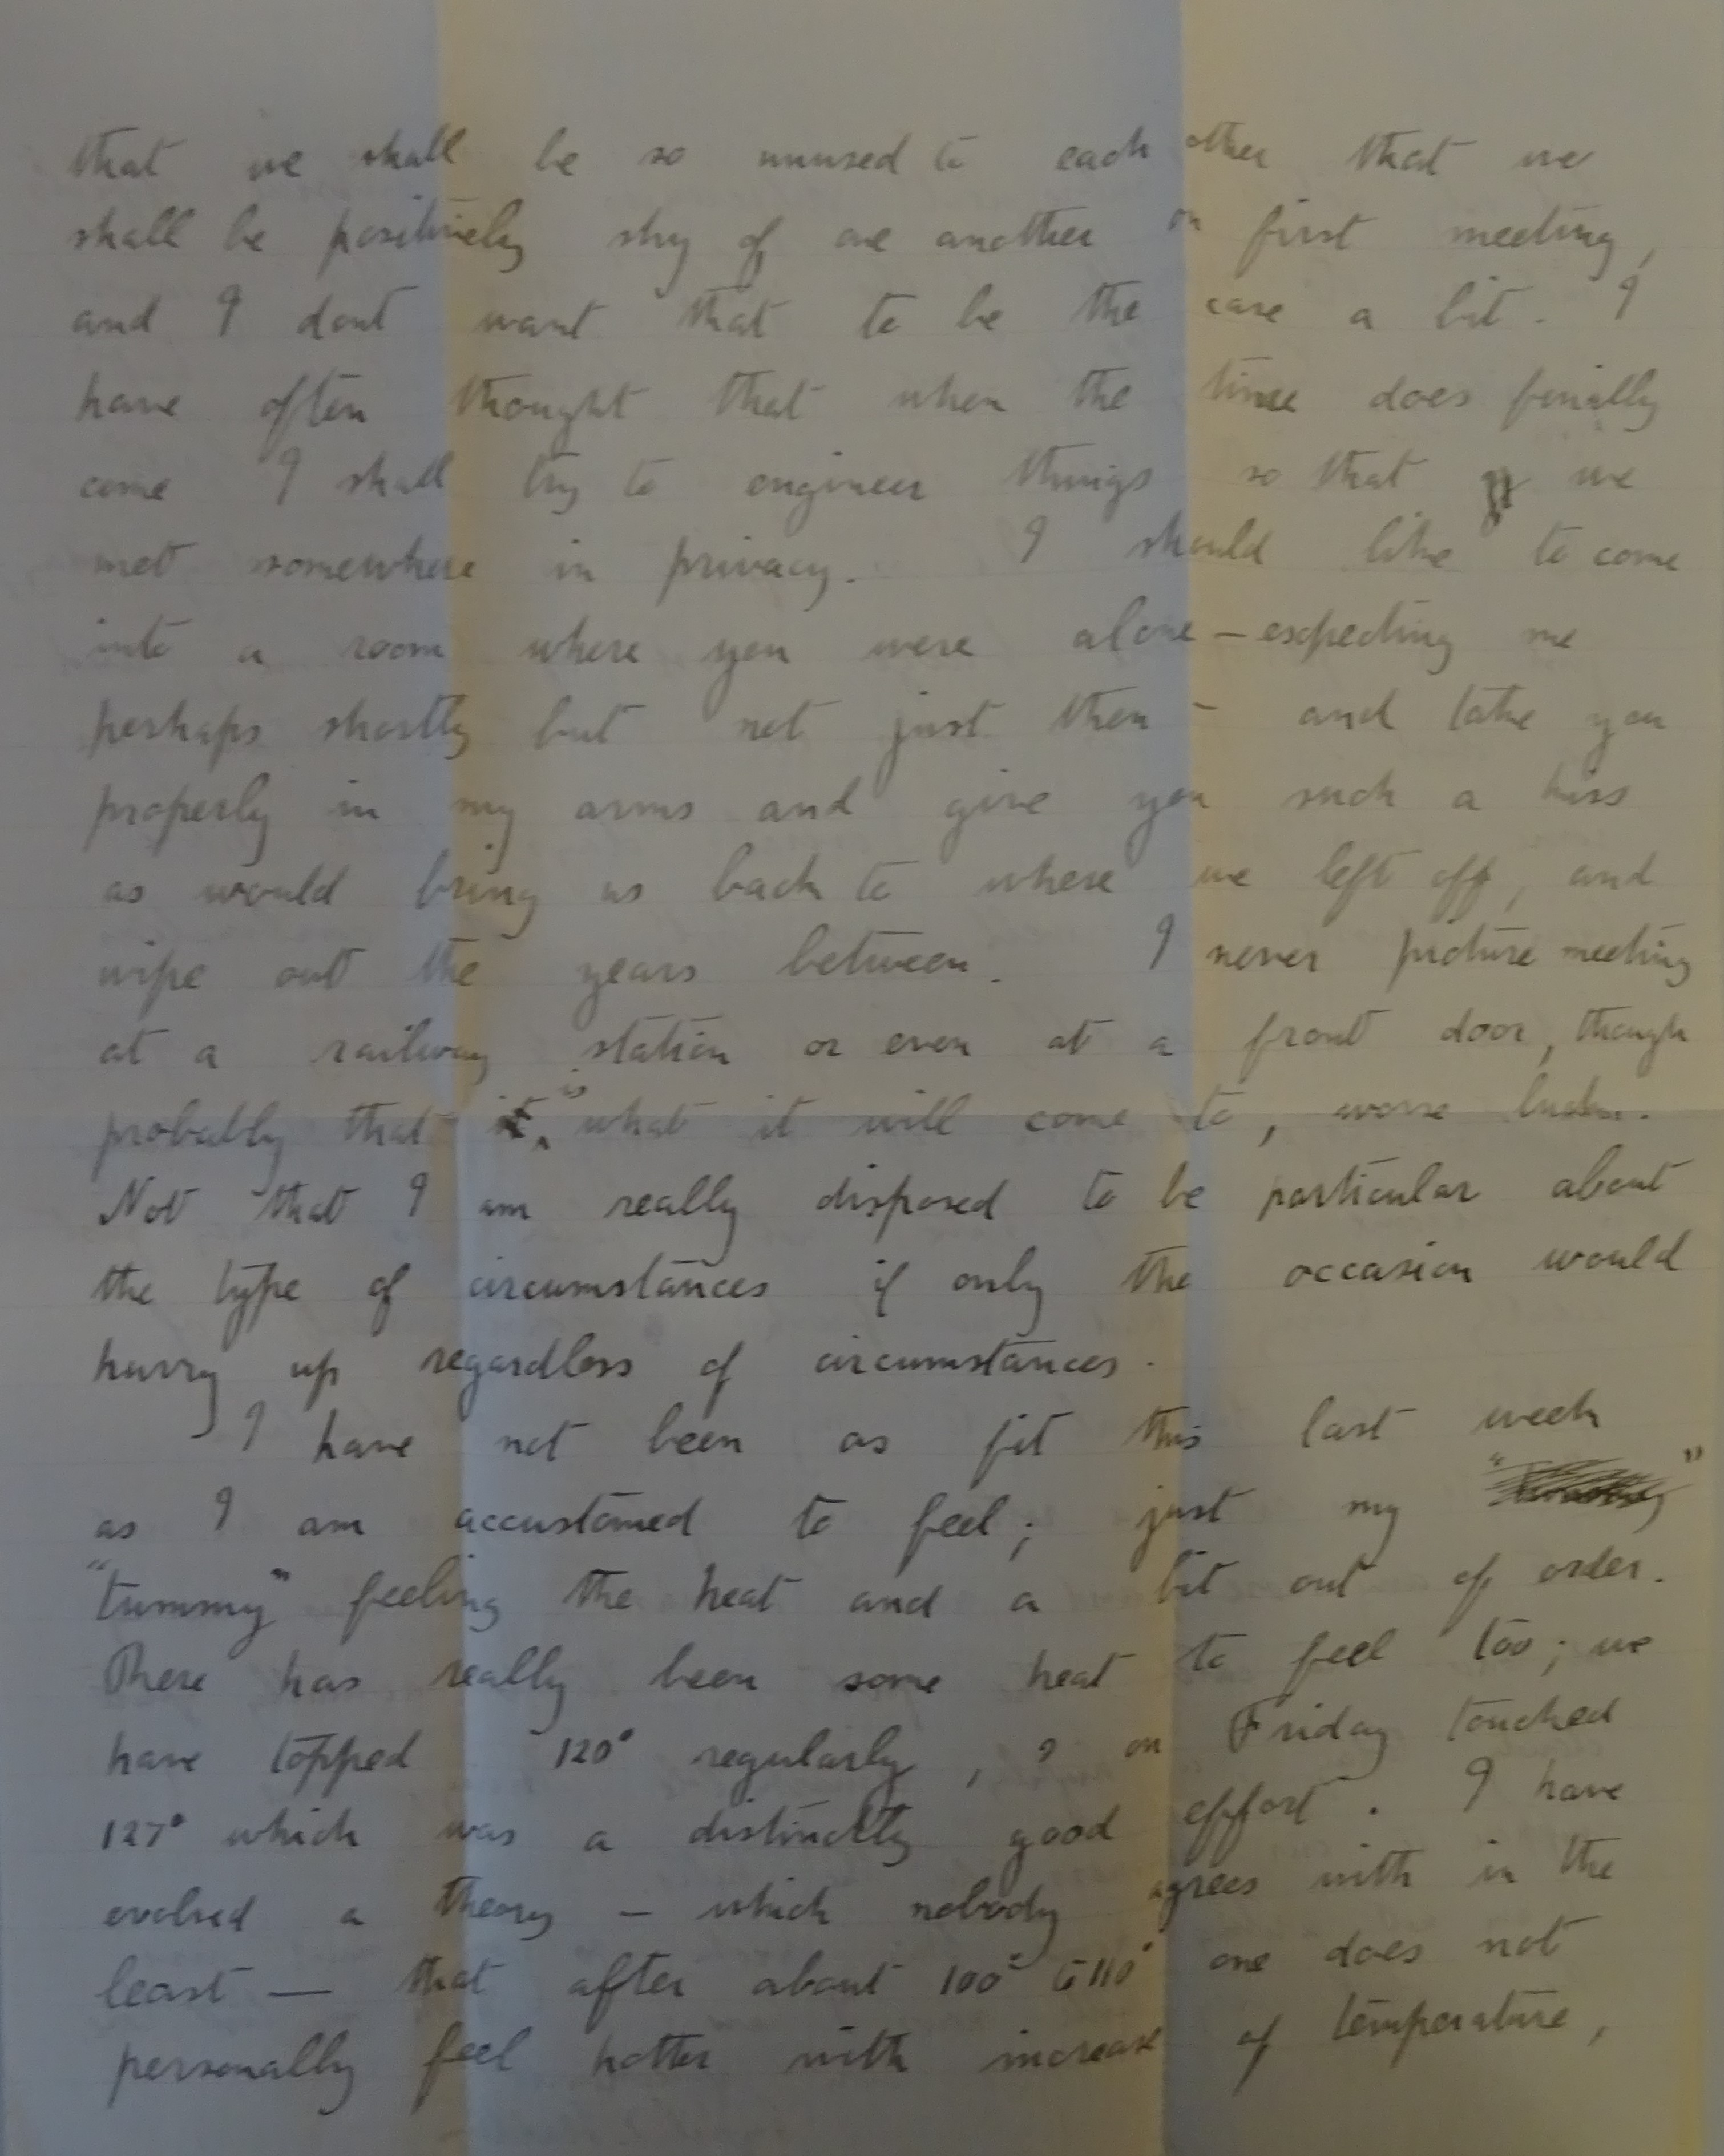 that we shall be so unused to each other that we
shall be positively shy of one another on first meeting,
and I dont want that to be the case a bit. I
have often thought that when the time does finally
come I shall try to engineer things so that we
met somewhere in privacy. I should like to come
into a room where you were alone – expecting me
perhaps shortly but not just then – and take you
properly in my arms and give you such a kiss
as would bring us back to where we left off, and
wipe out the years between. I never picture meeting
at a railway station or even at a front door, though
probably that is what it will come to, worse luck.
Not that I am really disposed to be particular about
the type of circumstances if only the occasion would
hurry up regardless of circumstances.
I have not been as fit this last week
as I am accustomed to feel; just my
"tummy" feeling the heat and a bit out of order.
There has really been some heat to feel too; we
have topped 120° regularly, & on Friday touched
127° which was a distinctly good effort. I have
evolved a theory – which nobody agrees with in the
least — that after about 100° to 110° one does not
personally feel hotter with increase of temperature,